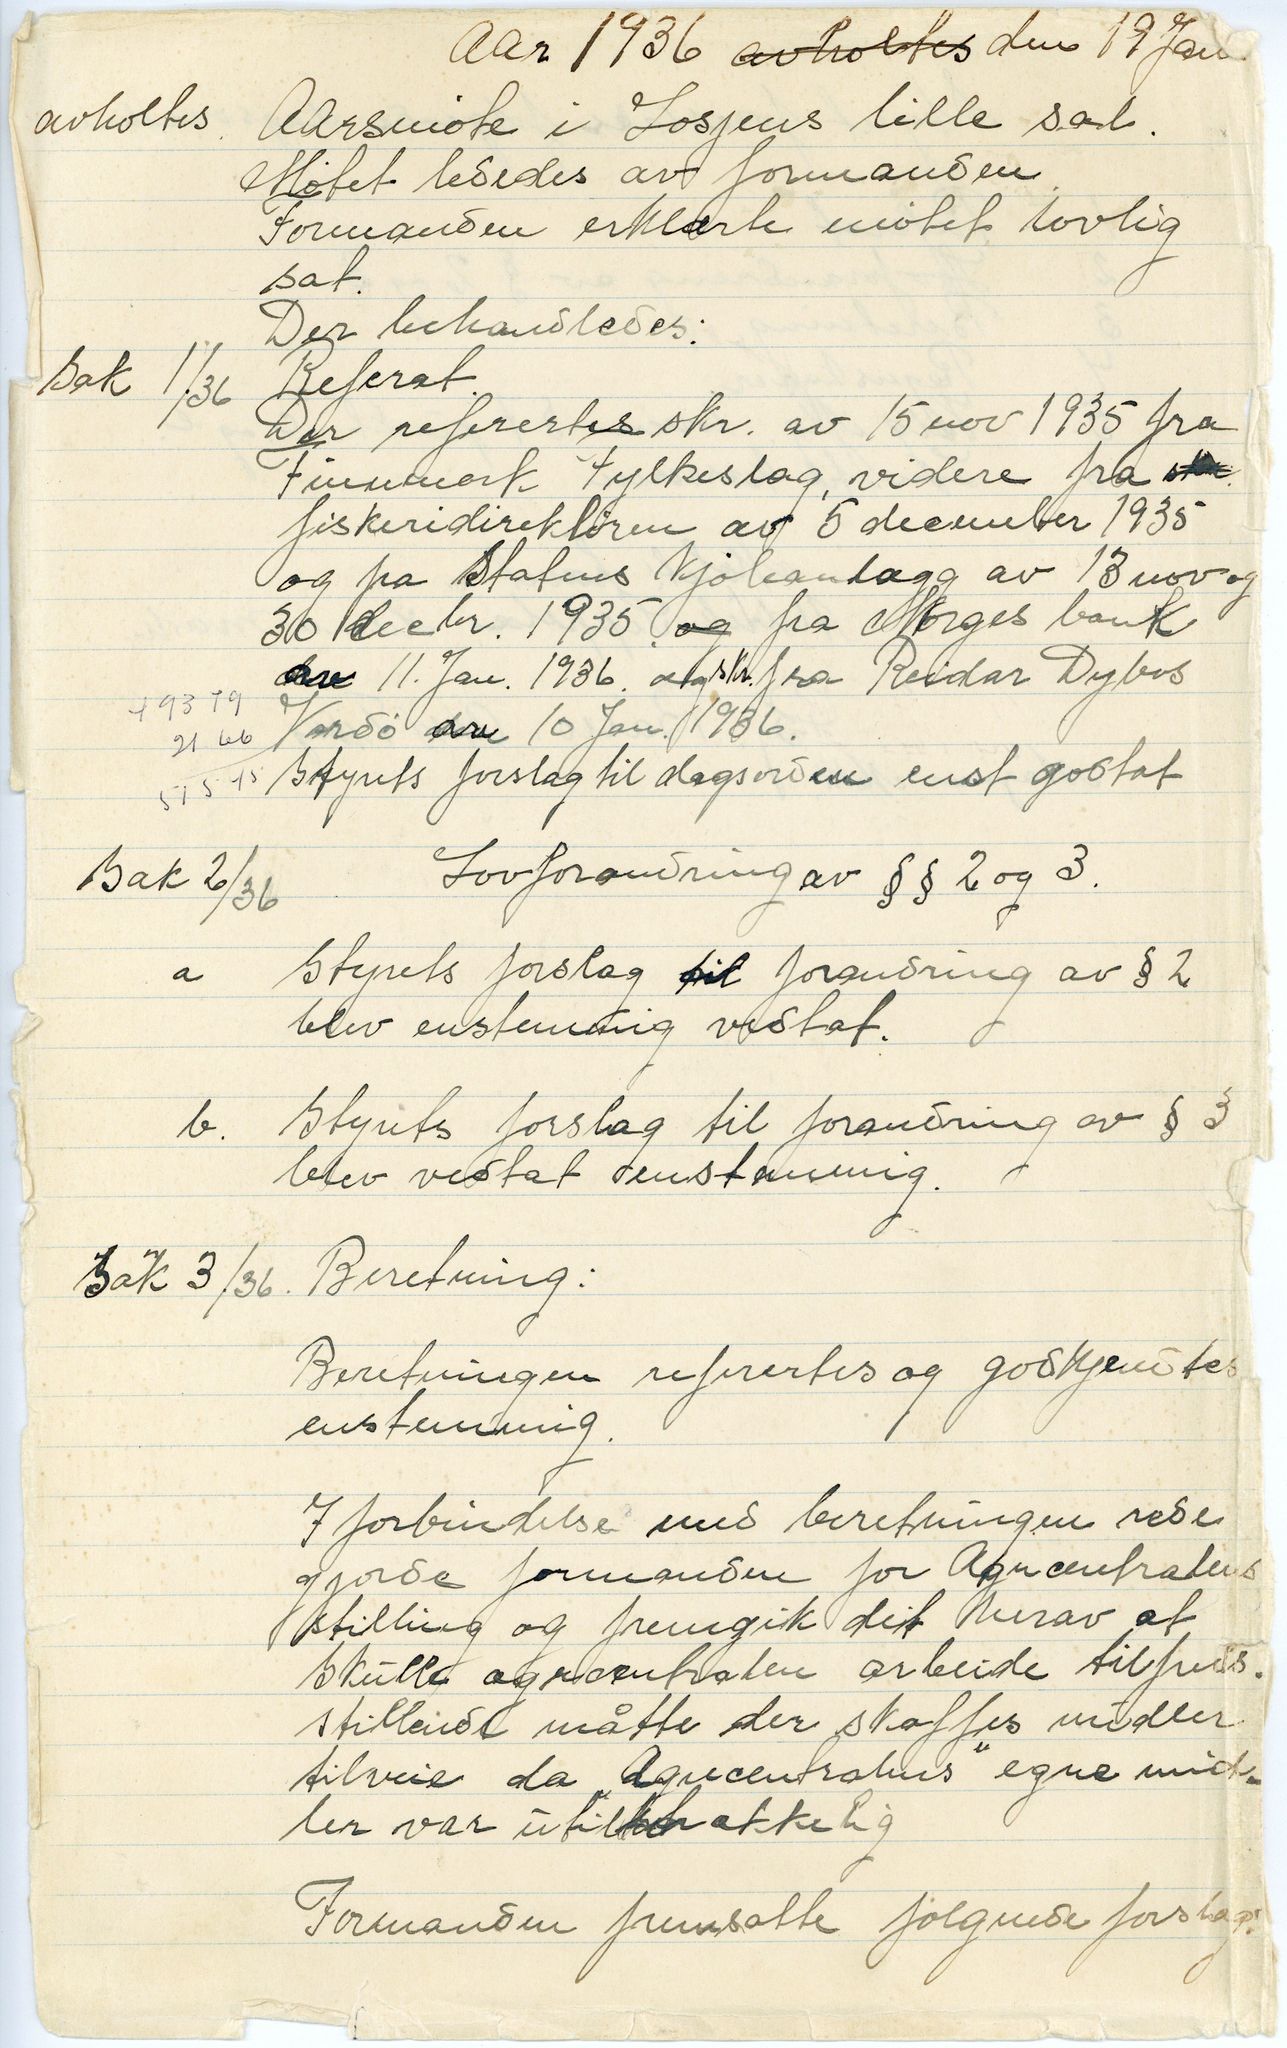 Aar 1936 avholtes den 19 Jan.
avholtes. Aarsmöte i Losjens lille sal.
Mötet lededes av formanden.
Formanden erklærte mötet lovlig
sat.
Der behandledes:
Sak 1/36 Referat.
Der refertes skr. av 15 nov 1935 fra
Finnmark Fylkeslag, videre fra
fiskeridirektören av 5 december 1935
og fra Statens Kjöleanlægg av 13 nov og
30 decbr. 1935 og fra Norges bank
11. Jan. 1936. og skr. fra Reidar Dybos
Vardö 10 Jan. 1936.
Styrets forslag til dagsorden enst godtat
49379
2166
51545
Sak 2/36 Lovforandring av §§ 2 og 3.
a Styrets forslag til forandring av § 2
blev enstemmig vedtat.
b. Styrets forslag til forandring av § 3
blev vedtat enstemmig.
Sak 3/36. Beretning:
Beretningen refertes og godkjendtes
enstemmig.
I forbindelse med beretningen rede
gjorde formanden for Agncentralens
stilling og fremgik det herav at
skulle agncentralen arbeide tilfreds-
stillende måtte der skaffes midler
tilveie da "Agncentralens" egne mid-
ler var utilstrækkelig
Formanden fremsatte fölgende forslag: